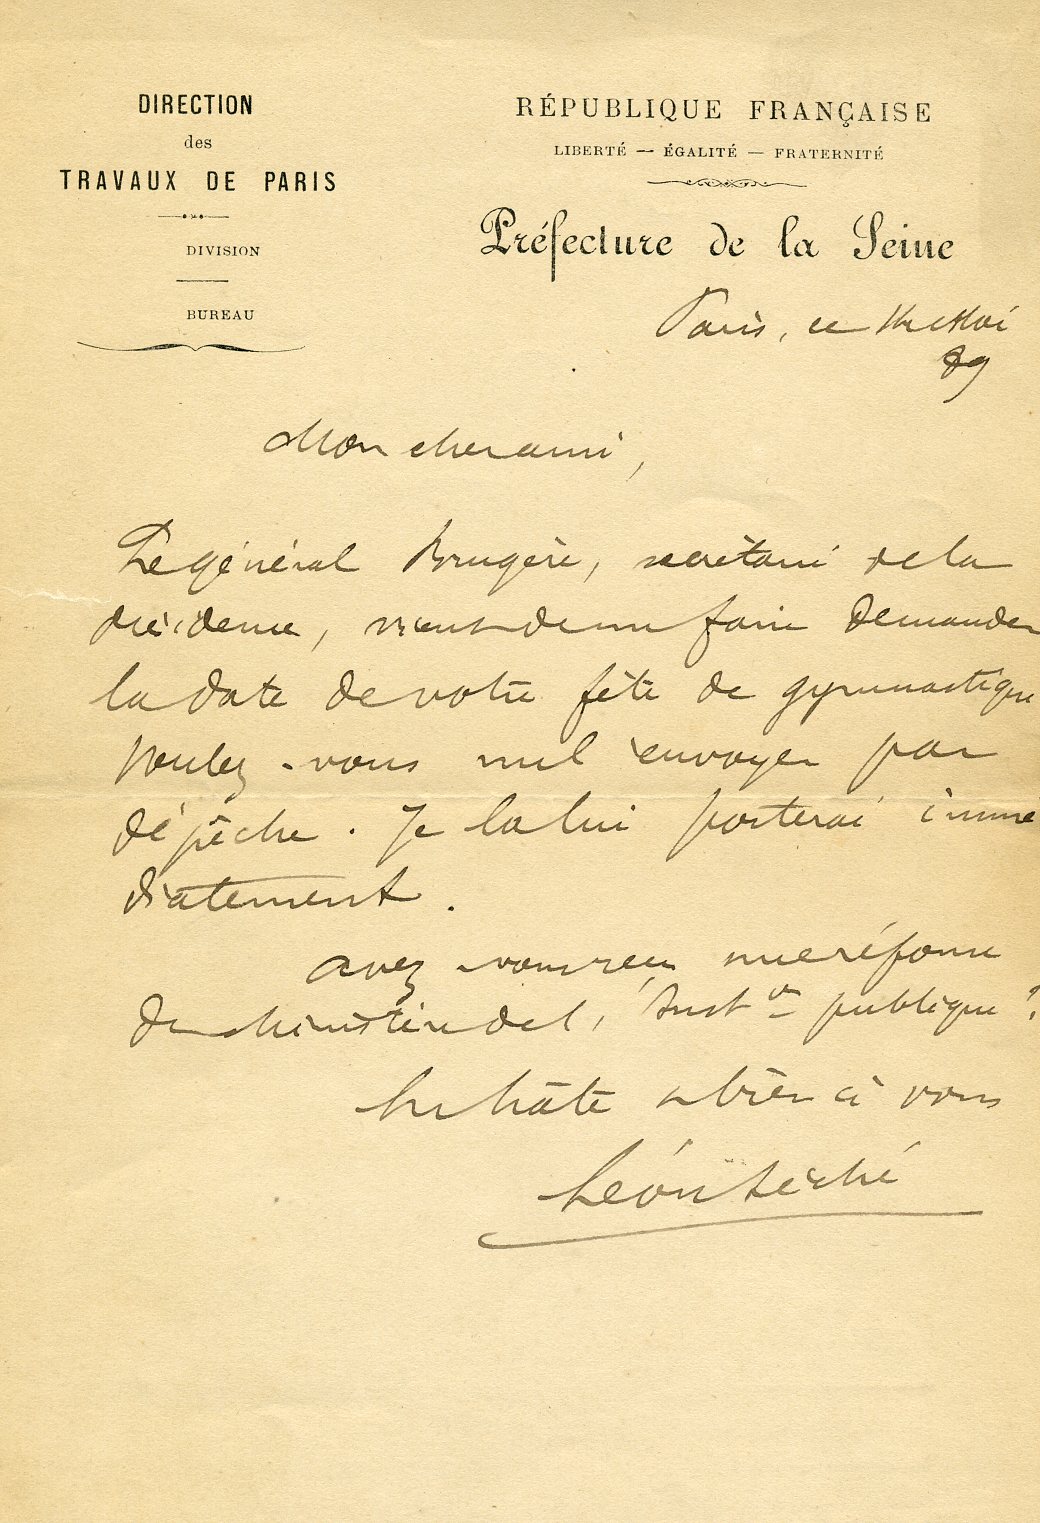 DIRECTION
des
TRAVAUX DE PARIS
DIVISION
BUREAU
RÉPUBLIQUE FRANÇAISE
LIBERTÉ — ÉGALITÉ — FRATERNITÉ
Préfecture de la Seine
Paris, ce Mai
89
Mon cher ami,
Le général Brugère, secrétaire de la
présidence, vient de me faire demander
la date de votre fête de gymnastique
voulez-vous me l'envoyer par
dépêche. Je la lui porterai immé
diatement.
avez vous reçu une réponse
du Ministère de l'Inst on publique ?
En hâte et bien à vous
Léon Séché